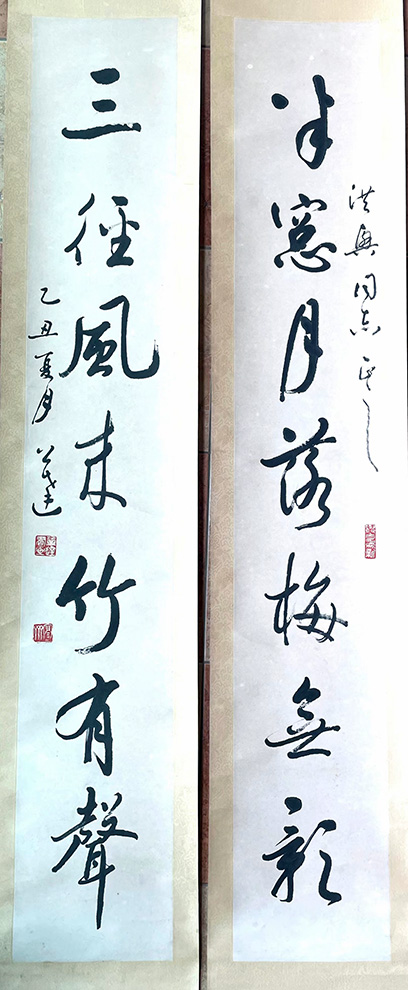 洪興同志正之
半窻月落梅無影
三徑風来竹有聲
乙丑夏月